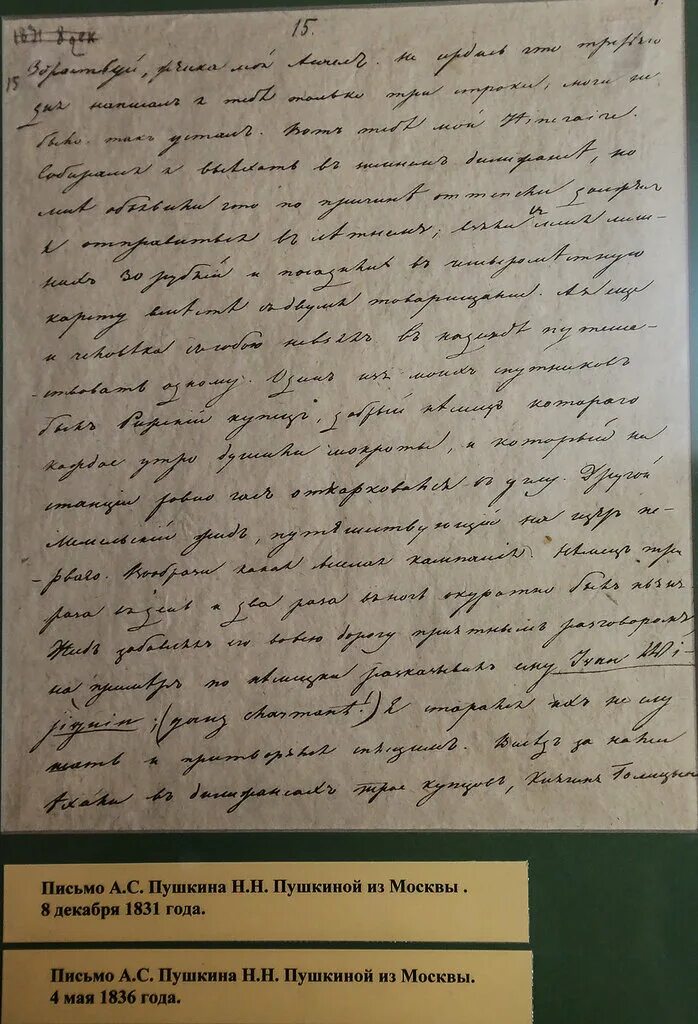 1831 8 дек
15.
15
Здраствуй, женка мой Ангел. не сердись что третьего
дня написалъ я тебѣ только три строки; мочи не
было. такъ усталъ. Вотъ тебѣ мой Itineraire.
Собирался я выѣхать въ зимнемъ дилижансѣ, но
мнѣ объявили что по причинѣ оттепели долженъ
я отправиться въ лѣтнемъ; взяли съ меня лиш-
нихъ 30 рублей и посадили въ четверомѣстную
карету вмѣстѣ съ двумя товарищами. А я еще
и человѣка съ собою не взялъ въ надеждѣ путеше-
ствовать одному. Одинъ изъ моихъ спутниковъ
былъ Рижскій купецъ, добрый нѣмецъ котораго
каждое утро душили мокроты, и который на
станціи ровно часъ отхаркивался въ углу. Другой
Мемельскій жидъ, путешествующій на щетъ пе-
-рваго. Вообрази какая веселая кампанія. Нѣмецъ три
раза въ день и два раза въ ночь окуратно былъ пьянъ.
Жидъ забавлялъ его во всю дорогу пріятнымъ разговоромъ
на примѣръ по нѣмецки разсказывалъ ему Iwan Wi-
jiguin; (ganz charmant!) Я старался ихъ не слу
шать и притворялся спящимъ. Вслѣдъ за нами
ѣхали въ дилижансахъ трое купцовъ, Княгиня Голицына
Письмо А.С. Пушкина Н.Н. Пушкиной из Москвы .
8 декабря 1831 года.
Письмо А.С. Пушкина Н.Н. Пушкиной из Москвы.
4 мая 1836 года.